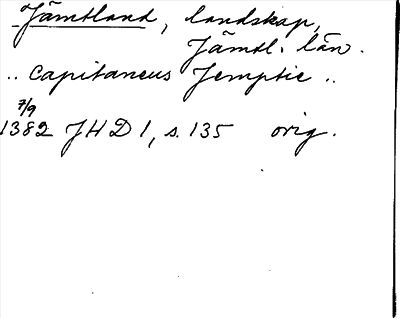 Jämtland, landskap,
Jämtl. län.
.. Capitaneus Jemptie ..
7/9
1382 JHD 1, s. 135 orig.